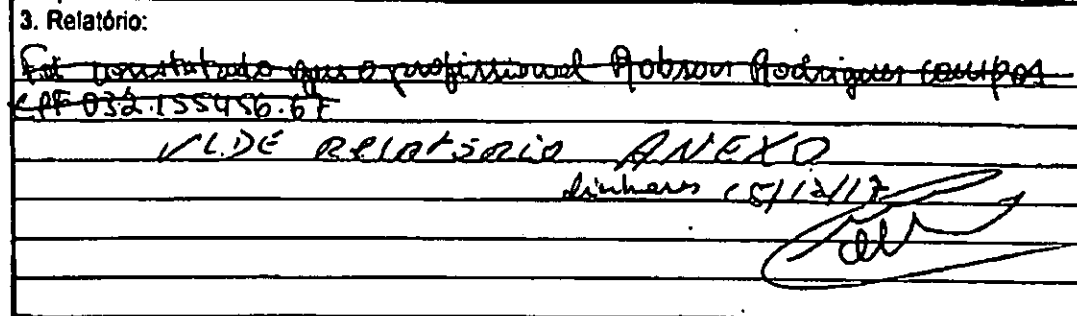 3. Relatório:
Foi constatado que o profissional Robson Rodrigues Campos
CPF 032.155456.67
VIDE RELATÓRIO ANEXO
Linhares 15/12/17